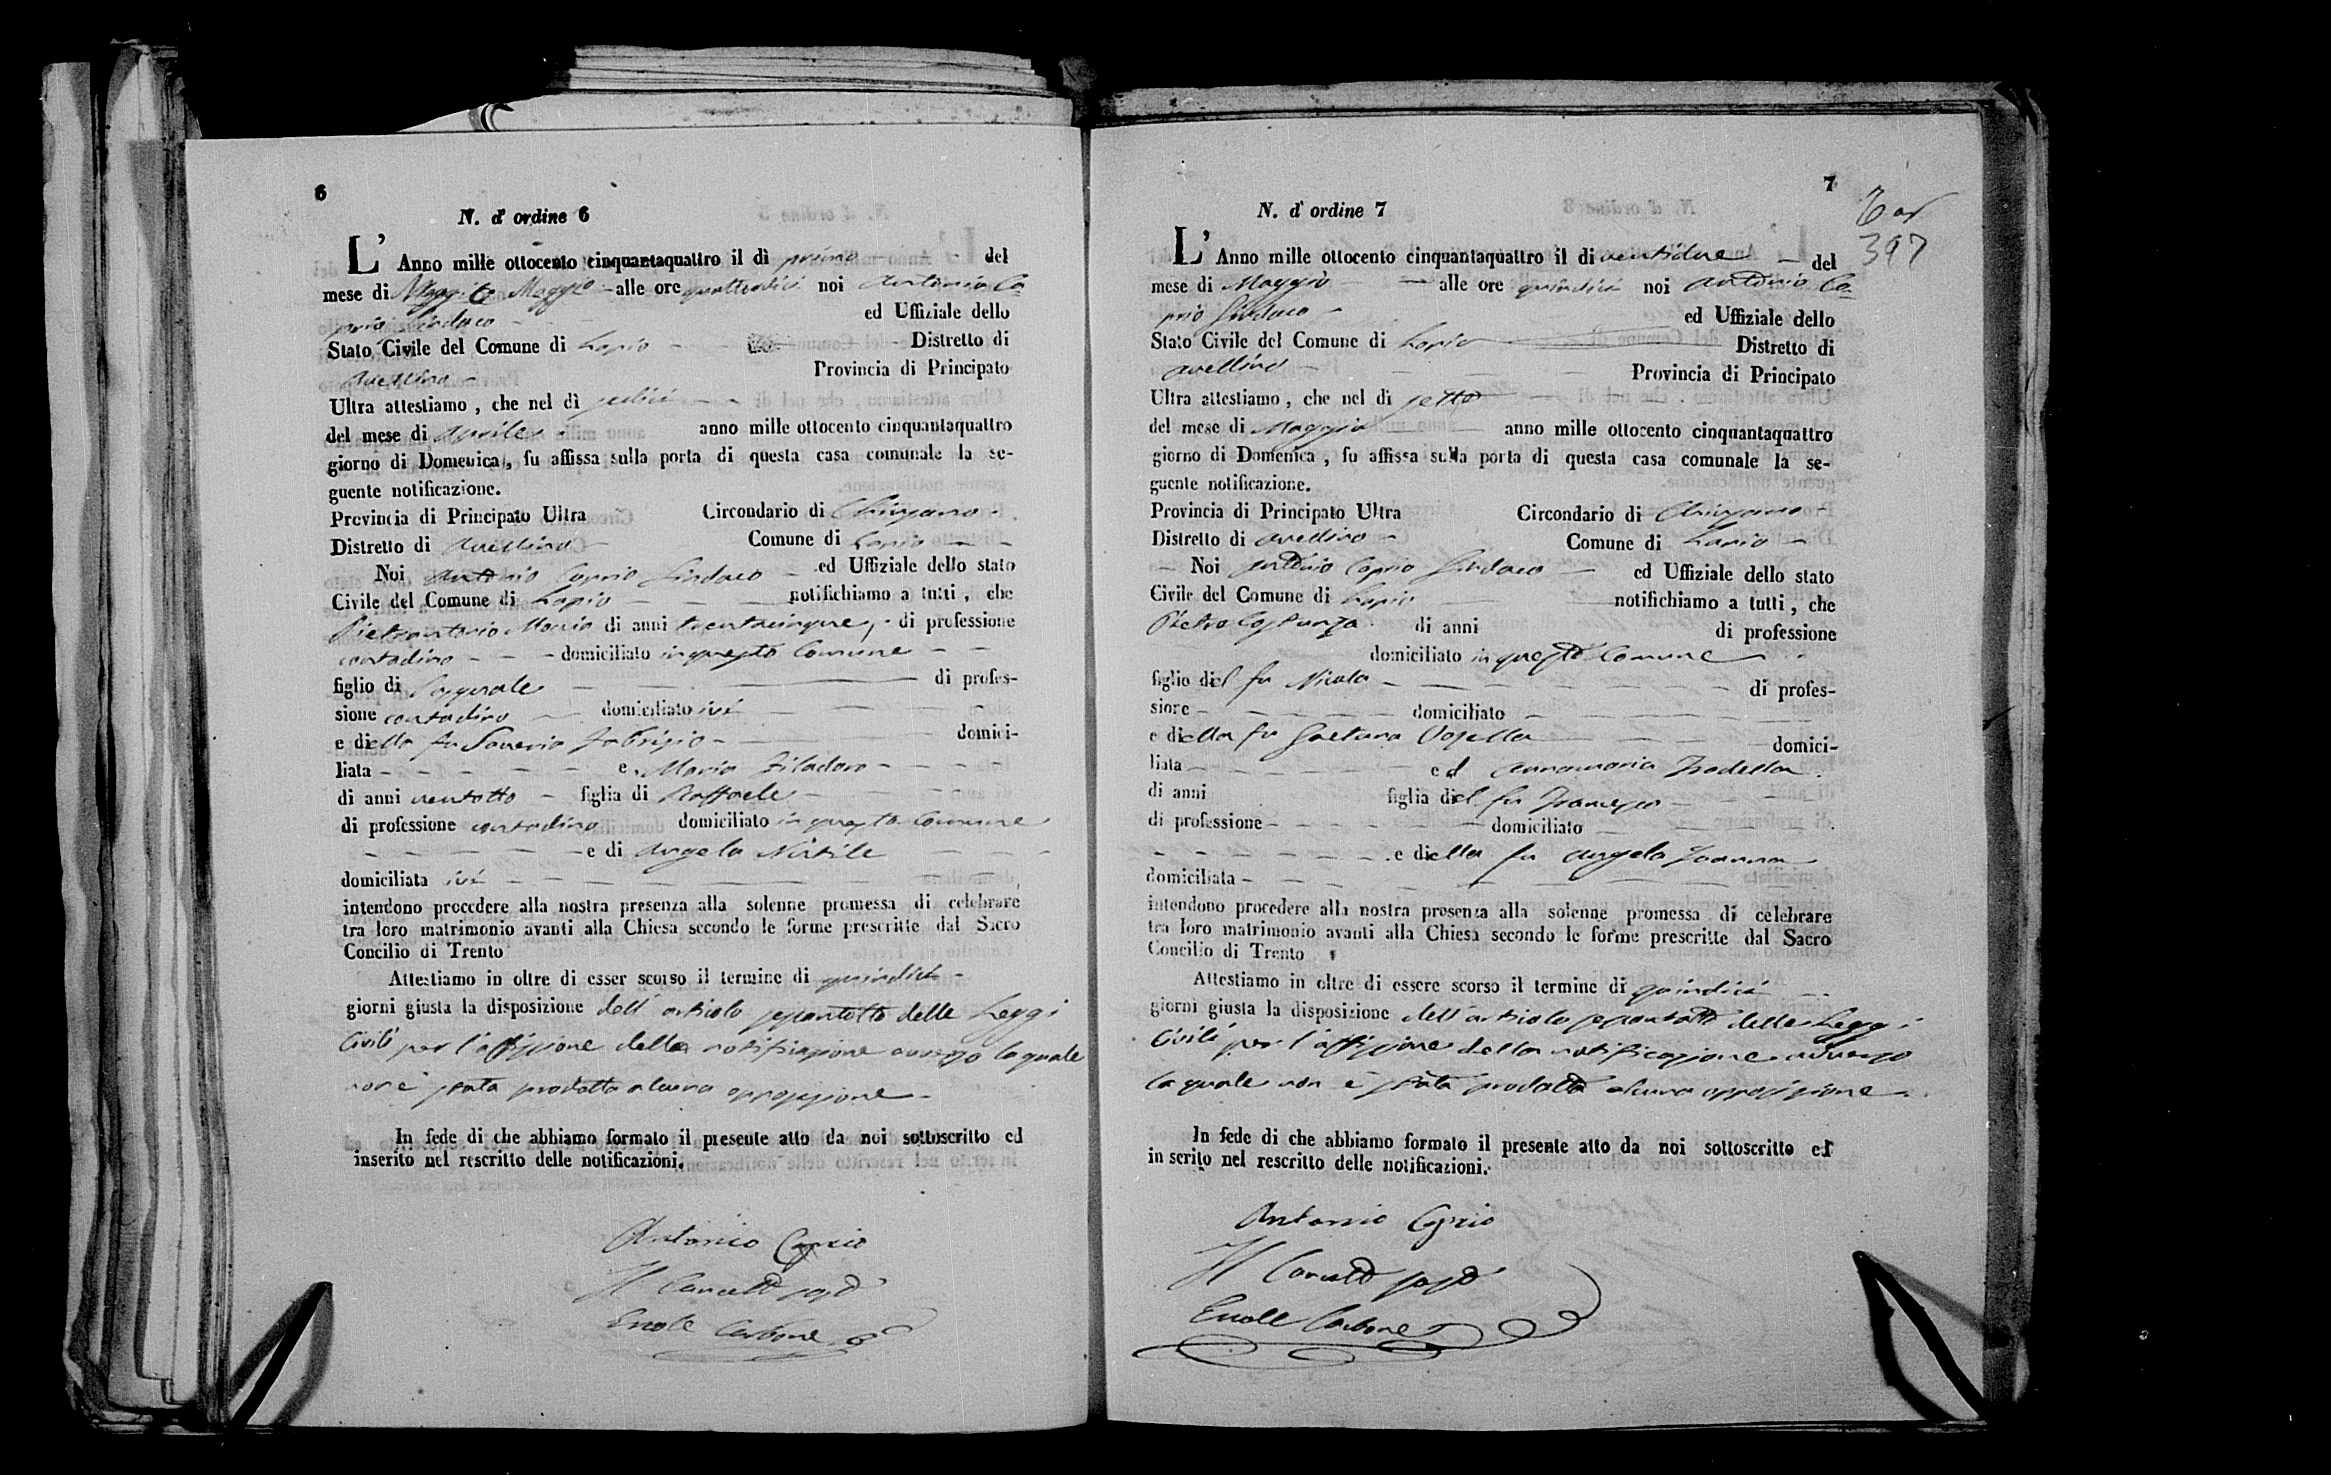 6
N. d' ordine 6
L' Anno mille ottocento cinquantaquattro il dì primo del
mese di Maggio alle ore quattordici noi Antonio Ca=
prio Sindaco ed Uffiziale dello
Stato Civile del Comune di Lapio Distretto di
Avellino Provincia di Principato
Ultra attestiamo, che nel dì sedici
del mese di Aprile anno mille ottocento cinquantaquattro
giorno di Domenica, fu affissa sulla porta di questa casa comunale la se-
guente notificazione.
Provincia di Principato Ultra Circondario di Chiusano
Distretto di Avellino Comune di Lapio
Noi Antonio Caprio Sindaco ed Uffiziale dello stato
Civile del Comune di Lapio notifichiamo a tutti, che
Pietrantonio di anni trentacinque, di professione
contadino domiciliato in questo Comune
figlio di Pasquale di profes-
sione contadino domiciliato ivi
e della fu Saveria Fabrizio domici-
liata e Maria Filadoro
di anni ventotto figlia di Raffaele
di professione contadino domiciliato in questo Comune
e di Angela
domiciliata ivi
intendono procedere alla nostra presenza alla solenne promessa di celebrare
tra loro matrimonio avanti alla Chiesa secondo le forme prescritte dal Sacro
Concilio di Trento
Attestiamo in oltre di esser scorso il termine di quindici
giorni giusta la disposizione dell' articolo sessantotto delle Leggi
Civili per l'affissione della notificazione avverso la quale
non è stata prodotta alcuna opposizione
In fede di che abbiamo formato il presente atto da noi sottoscritto ed
inserito nel rescritto delle notificazioni.
Antonio Caprio
Il Cancell sost
Carbone
7
397
N. d' ordine 7
L' Anno mille ottocento cinquantaquattro il di ventidue del
mese di Maggio alle ore quindici noi Antonio Ca=
prio Sindaco ed Uffiziale dello
Stato Civile del Comune di Lapio Distretto di
Avellino Provincia di Principato
Ultra attestiamo, che nel di sette
del mese di Maggio anno mille ottocento cinquantaquattro
giorno di Domenica, fu affissa sulla porta di questa casa comunale la se-
guente notificazione.
Provincia di Principato Ultra Circondario di Chiusano
Distretto di Avellino Comune di Lapio
Noi Antonio Caprio Sindaco ed Uffiziale dello stato
Civile del Comune di Lapio notifichiamo a tutti, che
Pietro Costanza di anni di professione
domiciliato in questo Comune
figlio del fu Nicola di profes-
sione domiciliato
e della fu Gaetana domici-
liata ed Annamaria
di anni figlia del fu Francesco
di professione domiciliato
e della fu Angela
domiciliata
intendono procedere alla nostra presenza alla solenne promessa di celebrare
tra loro matrimonio avanti alla Chiesa secondo le forme prescritte dal Sacro
Concilio di Trento
Attestiamo in oltre di essere scorso il termine di quindici
giorni giusta la disposizione dell' articolo sessantotto delle Leggi
Civili per l'affissione della notificazione avverso
la quale non è stata prodotta alcuna opposizione
In fede di che abbiamo formato il presente atto da noi sottoscritto ed
inserito nel rescritto delle notificazioni.
Antonio Caprio
Il Cancell sost
Carbone